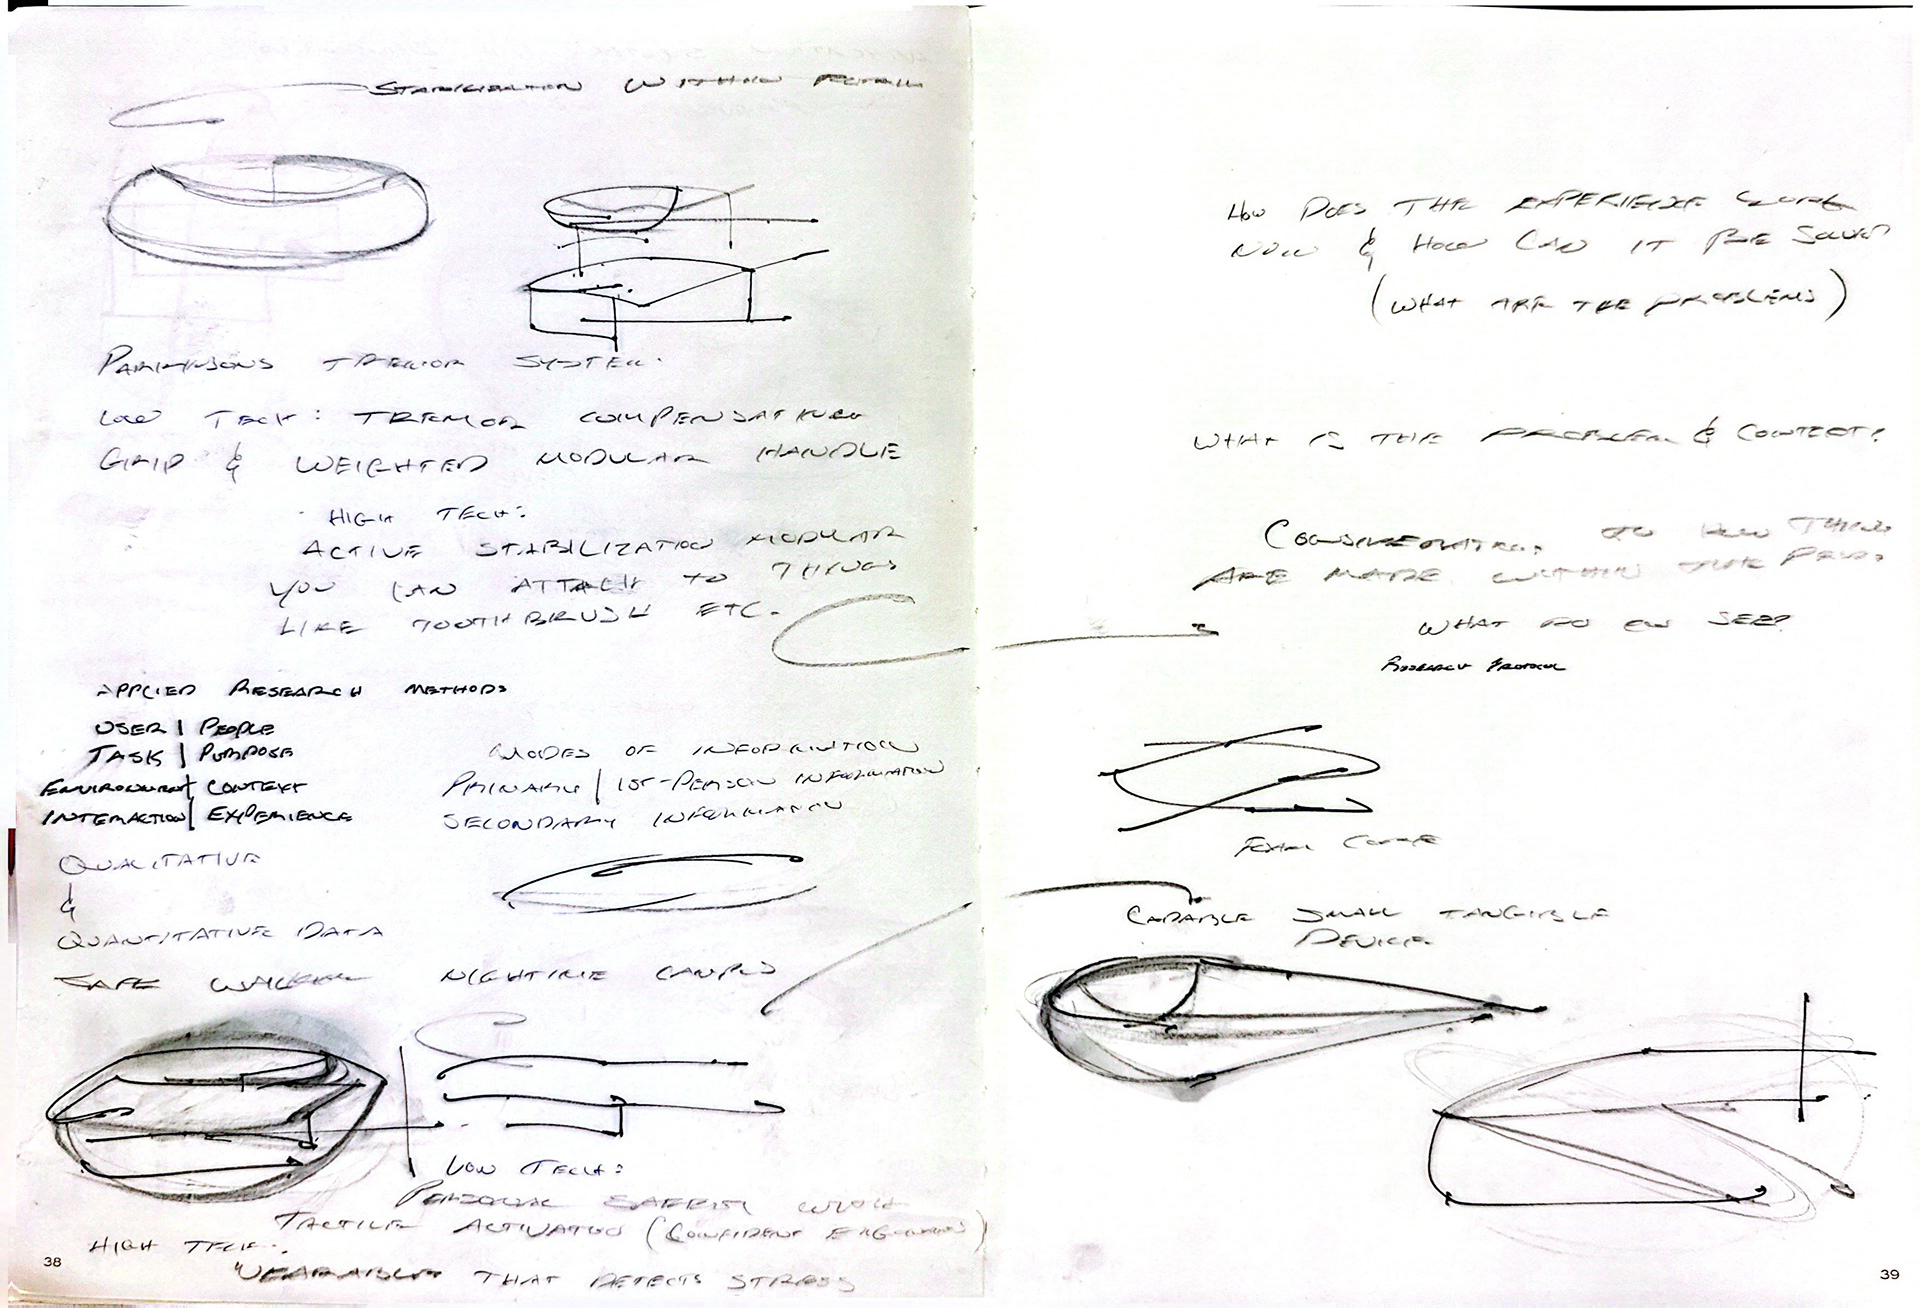 STABILIZATION WITHIN
PARKINSONS TREMOR SYSTEM.
LOW TECH: TREMOR COMPENSATING
GRIP & WEIGHTED MODULAR HANDLE
HIGH TECH:
ACTIVE STABILIZATION MODULAR
YOU CAN ATTACH TO THINGS
LIKE TOOTHBRUSH ETC.
APPLIED RESEARCH METHODS
USER | PEOPLE
TASK | PURPOSE
ENVIRONMENT CONTEXT
INTERACTION | EXPERIENCE
MODES OF INFORMATION
PRIMARY | 1ST-PERSON INFORMATION
SECONDARY INFORMATION
QUALITATIVE
&
QUANTITATIVE DATA
SAFE WALKING NIGHTIME CAMPUS
LOW TECH:
PERSONAL SAFETY
TACTILE ACTIVATED (CONFIDENT
HIGH TECH:
WEARABLE THAT DETECTS STRESS
38
HOW DOES THE EXPERIENCE WORK
NOW & HOW CAN IT BE SOLVED
(WHAT ARE THE PROBLEMS)
WHAT IS THE PROBLEM & CONTEXT?
CONSIDERATION TO HOW THINGS
ARE MADE WITHIN THE
WHAT DO SEE?
RESEARCH PROTOCOL
CAPABLE SMALL TANGIBLE
DEVICE
39